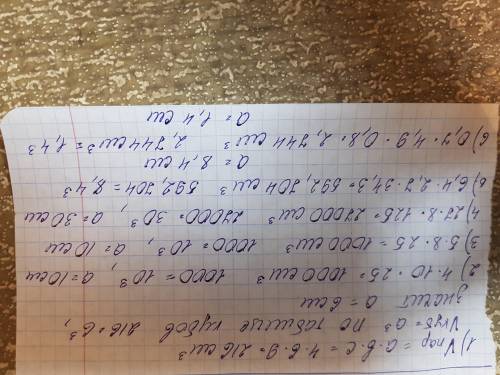 1) Vпар = a·b·c = 4·6·9 = 216 см³
Vкуб = a³ по таблице кубов 216 = 6³,
значит a = 6 см
2) 4·10·25 = 1000 см³ 1000 = 10³, a = 10 см
3) 5·8·25 = 1000 см³ 1000 = 10³, a = 10 см
4) 27·8·125 = 27000 см³ 27000 = 30³, a = 30 см
6) 6,4·2,7·34,3 = 592,704 см³ 592,704 = 8,4³
a = 8,4 см
6) 0,7·4,9·0,8 = 2,744 см³ 2,744 см³ = 1,4³
a = 1,4 см